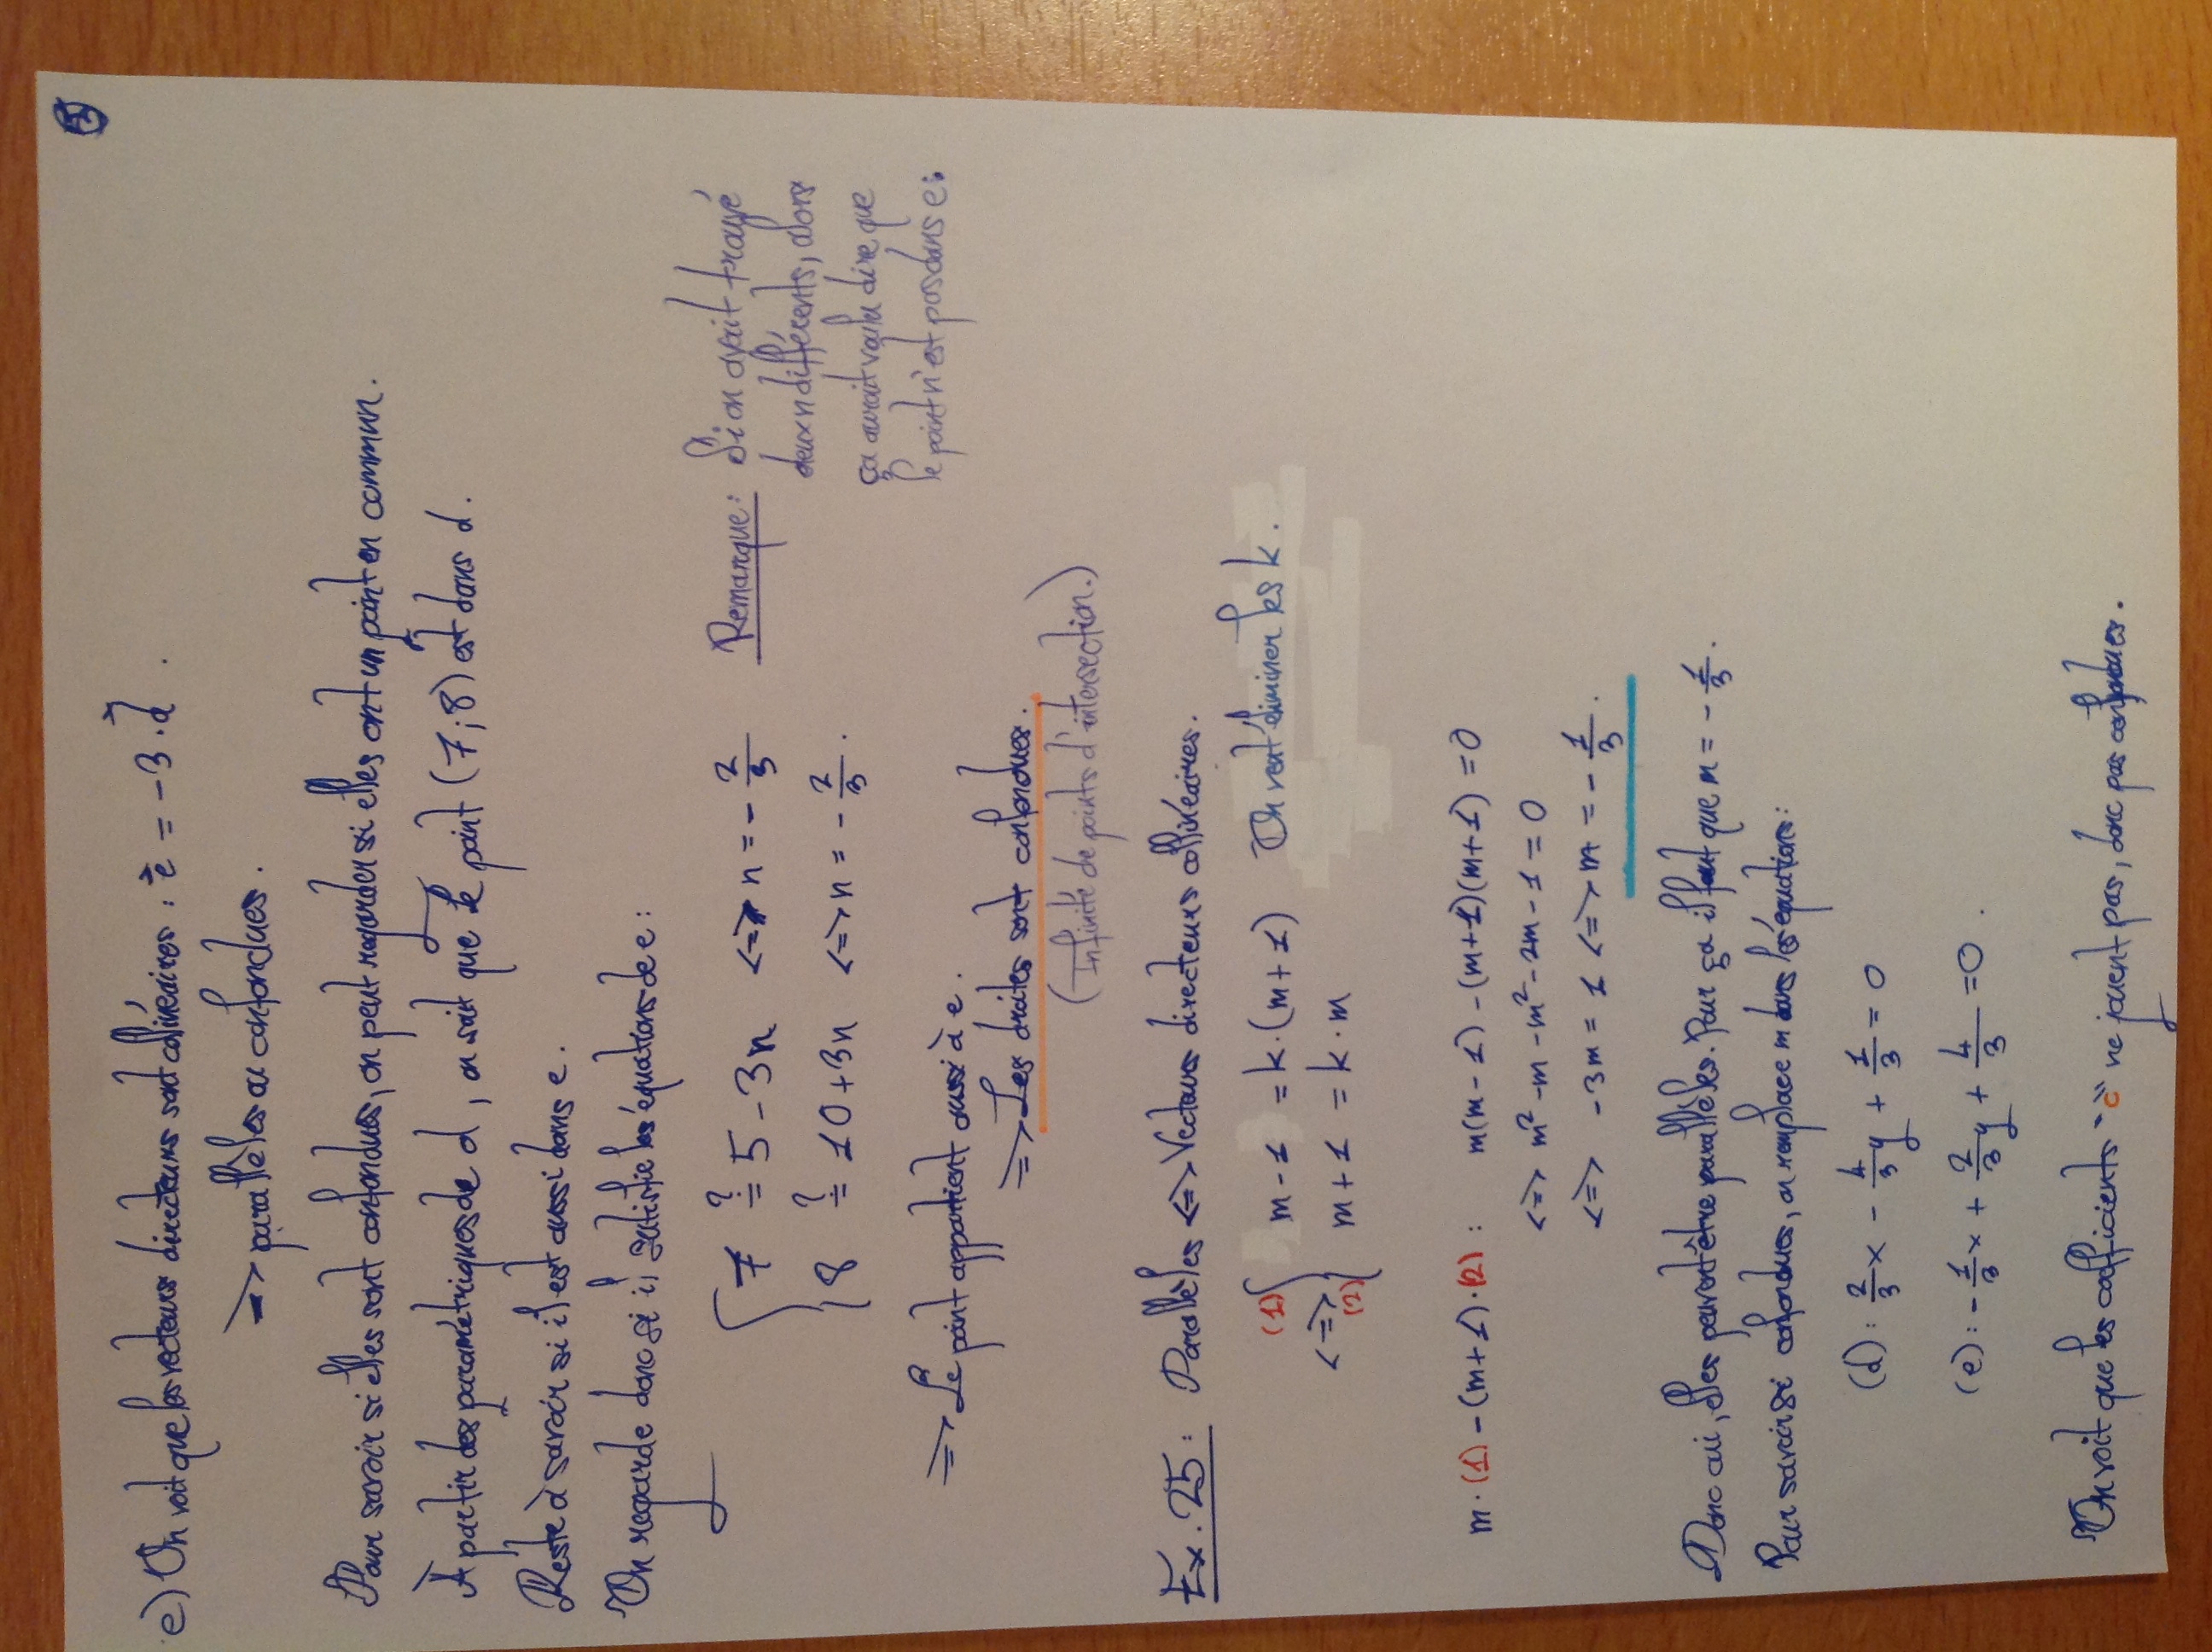 3
e) On voit que les vecteurs directeurs sont collinéaires : e⃗ = -3 · d⃗ .
=> parallèles ou confondues.
Pour savoir si elles sont confondues, on peut regarder si elles ont un point en commun.
À partir des paramétriques de d, on sait que le point (7;8) est dans d.
Reste à savoir si il est aussi dans e.
On regarde donc si il satisfie les équations de e :
7 ≟ 5 - 3n <=> n = - 2/3
8 ≟ 10 + 3n <=> n = - 2/3 .
Remarque : Si on avait trouvé
deux n différents, alors
ça aurait voulu dire que
le point n'est pas dans e.
=> Le point appartient aussi à e.
=> Les droites sont confondues.
(Infinité de points d'intersection.)
Ex. 25 : Parallèles <=> Vecteurs directeurs collinéaires.
(1) m - 1 = k · (m + 1) On veut éliminer les k.
<=>
(2) m + 1 = k · m
m · (1) - (m + 1) · (2) : m(m - 1) - (m + 1)(m + 1) = 0
<=> m² - m - m² - 2m - 1 = 0
<=> -3m = 1 <=> m = - 1/3 .
Donc oui, elles peuvent être parallèles. Pour ça il faut que m = - 1/3 .
Pour savoir si confondues, on remplace m dans les équations :
(d) : 2/3 x - 4/3 y + 1/3 = 0
(e) : - 1/3 x + 2/3 y + 4/3 = 0 .
On voit que les coefficients "c" ne jouent pas, donc pas confondues.